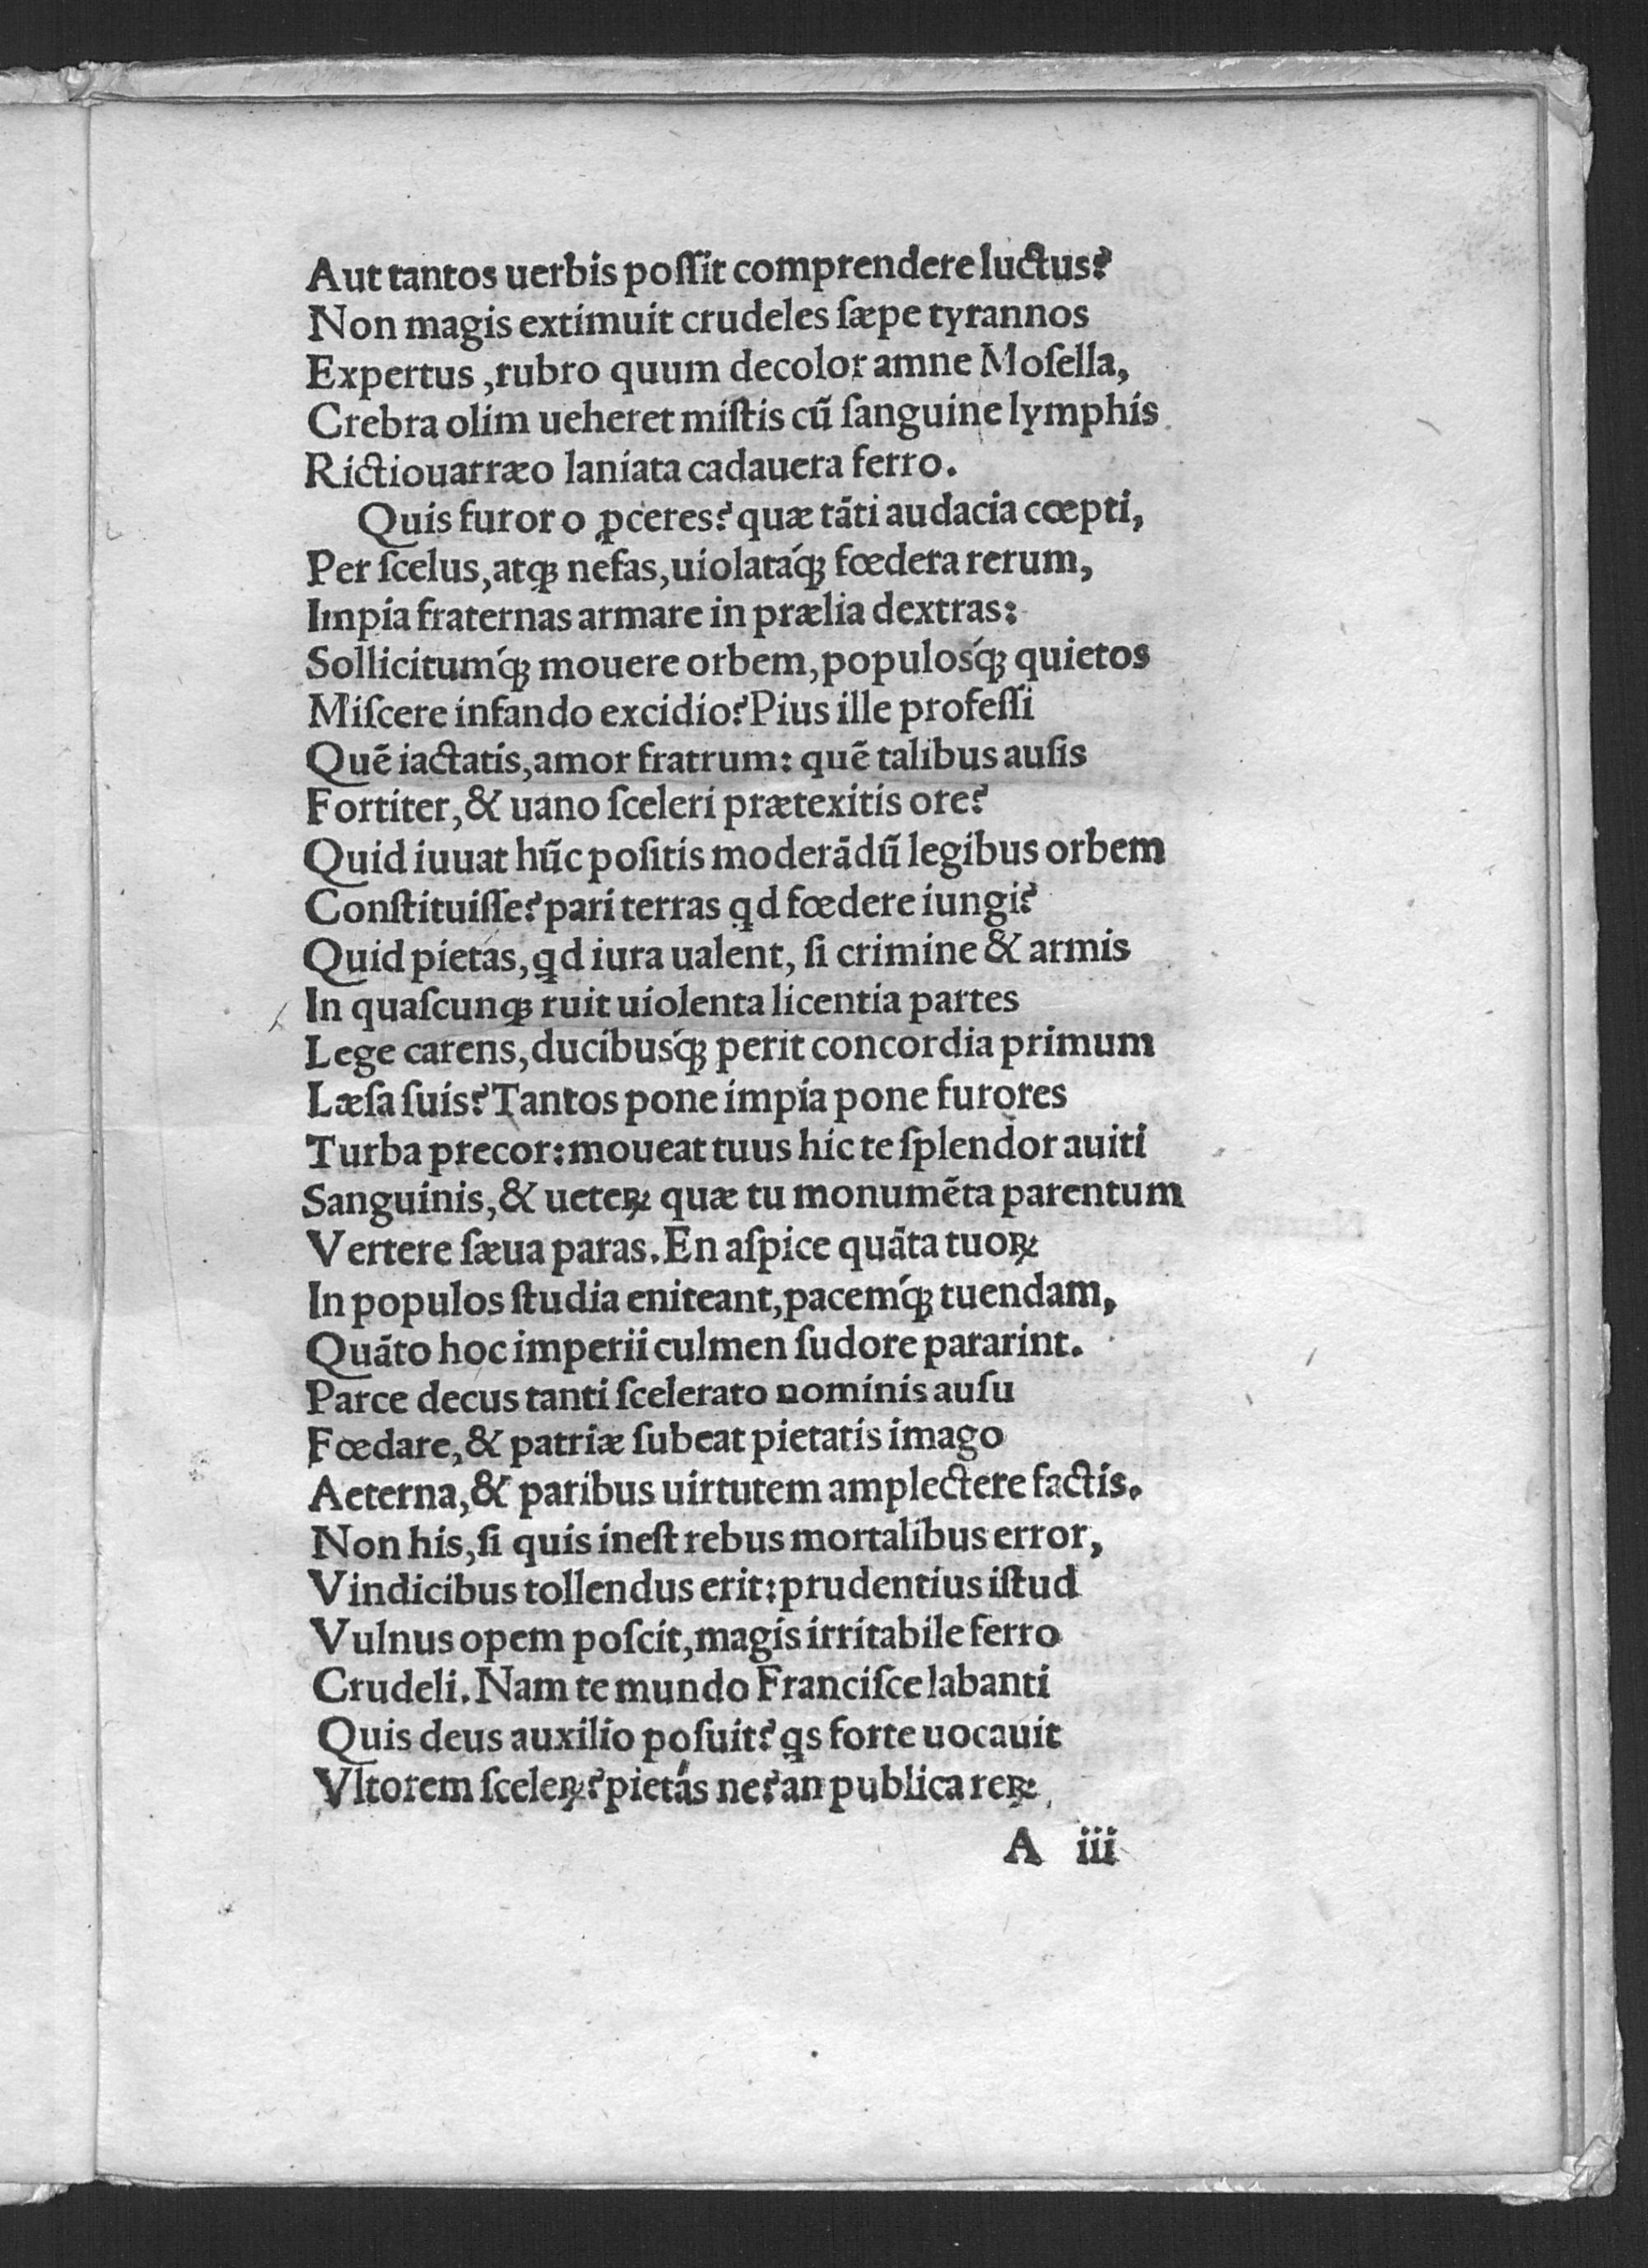 Aut tantos uerbis poſſit comprendere luctus?
Non magis extimuit crudeles ſæpe tyrannos
Expertus, rubro quum decolor amne Moſella,
Crebra olim ueheret miſtis cũ ſanguine lymphis
Rictiouarræo laniata cadauera ferro.
Quis furor o ꝓceres? quæ tãti audacia cœpti,
Per ſcelus, atqꝫ nefas, uiolatáqꝫ fœdera rerum,
Impia fraternas armare in prælia dextras:
Sollicitumq́ꝫ mouere orbem, populosq́ꝫ quietos
Miſcere infando excidio? Pius ille profeſſi
Quẽ iactatis, amor fratrum: quẽ talibus auſis
Fortiter, & uano ſceleri prætexitis ore?
Quid iuuat hũc poſitis moderãdũ legibus orbem
Conſtituiſſe? pari terras qd fœdere iungi?
Quid pietas, qd iura ualent, ſi crimine & armis
In quaſcunqꝫ ruit uiolenta licentia partes
Lege carens, ducibusq́ꝫ perit concordia primum
Læſa ſuis? Tantos pone impia pone furores
Turba precor: moueat tuus hic te ſplendor auiti
Sanguinis, & ueteꝝ quæ tu monumẽta parentum
Vertere ſæua paras. En aſpice quãta tuoꝝ
In populos ſtudia eniteant, pacemq́ꝫ tuendam,
Quãto hoc imperii culmen ſudore pararint.
Parce decus tanti ſcelerato nominis auſu
Fœdare, & patriæ ſubeat pietatis imago
Aeterna, & paribus uirtutem amplectere factis.
Non his, ſi quis ineſt rebus mortalibus error,
Vindicibus tollendus erit: prudentius iſtud
Vulnus opem poſcit, magis irritabile ferro
Crudeli. Nam te mundo Franciſce labanti
Quis deus auxilio poſuit? qs forte uocauit
Vltorem ſceleꝝ? pietás ne? an publica reꝝ
A iii